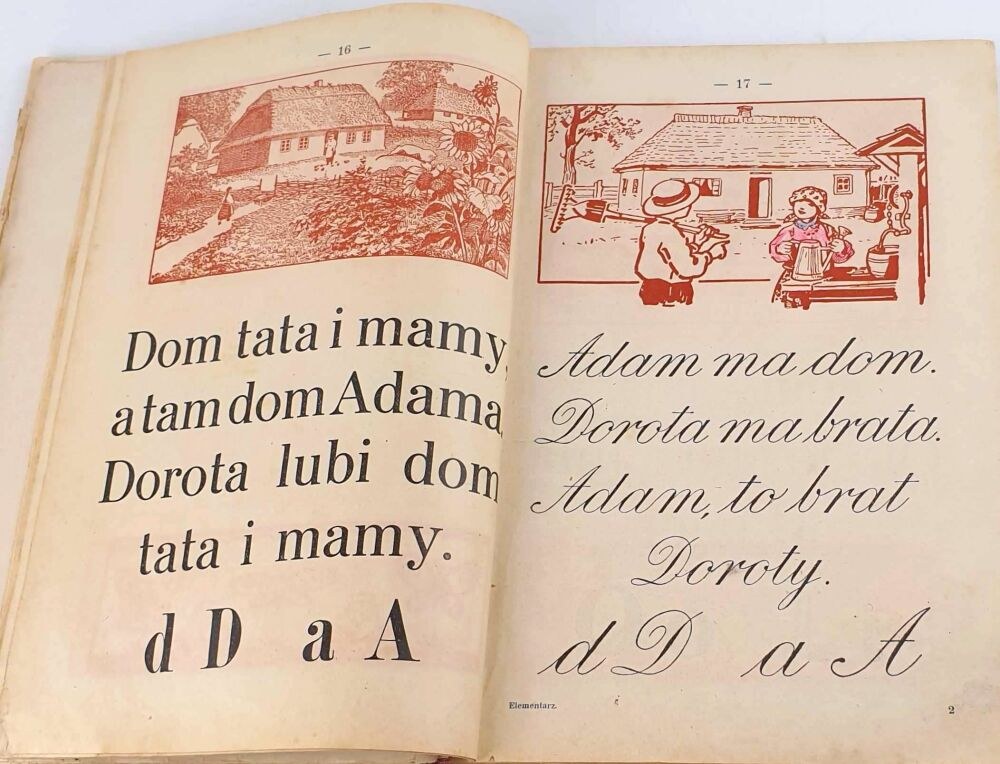 — 16 —
Dom tata i mamy,
a tam dom Adama,
Dorota lubi dom
tata i mamy.
d D a A
— 17 —
Adam ma dom.
Dorota ma brata.
Adam, to brat
Doroty.
d D a A
Elementarz.
2